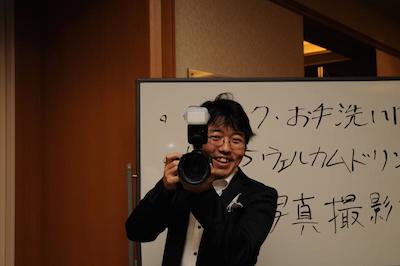 ク・お手洗い
ウェルカムドリン
写真撮影